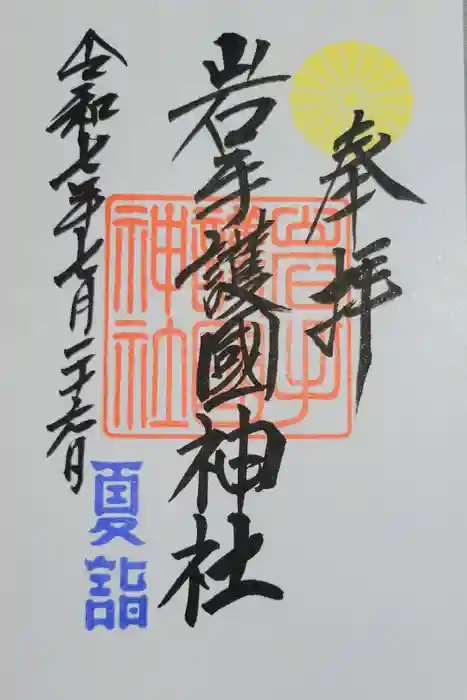 奉拝
岩手護國神社
岩手
護國
神社
令和七年七月二十六日
夏詣